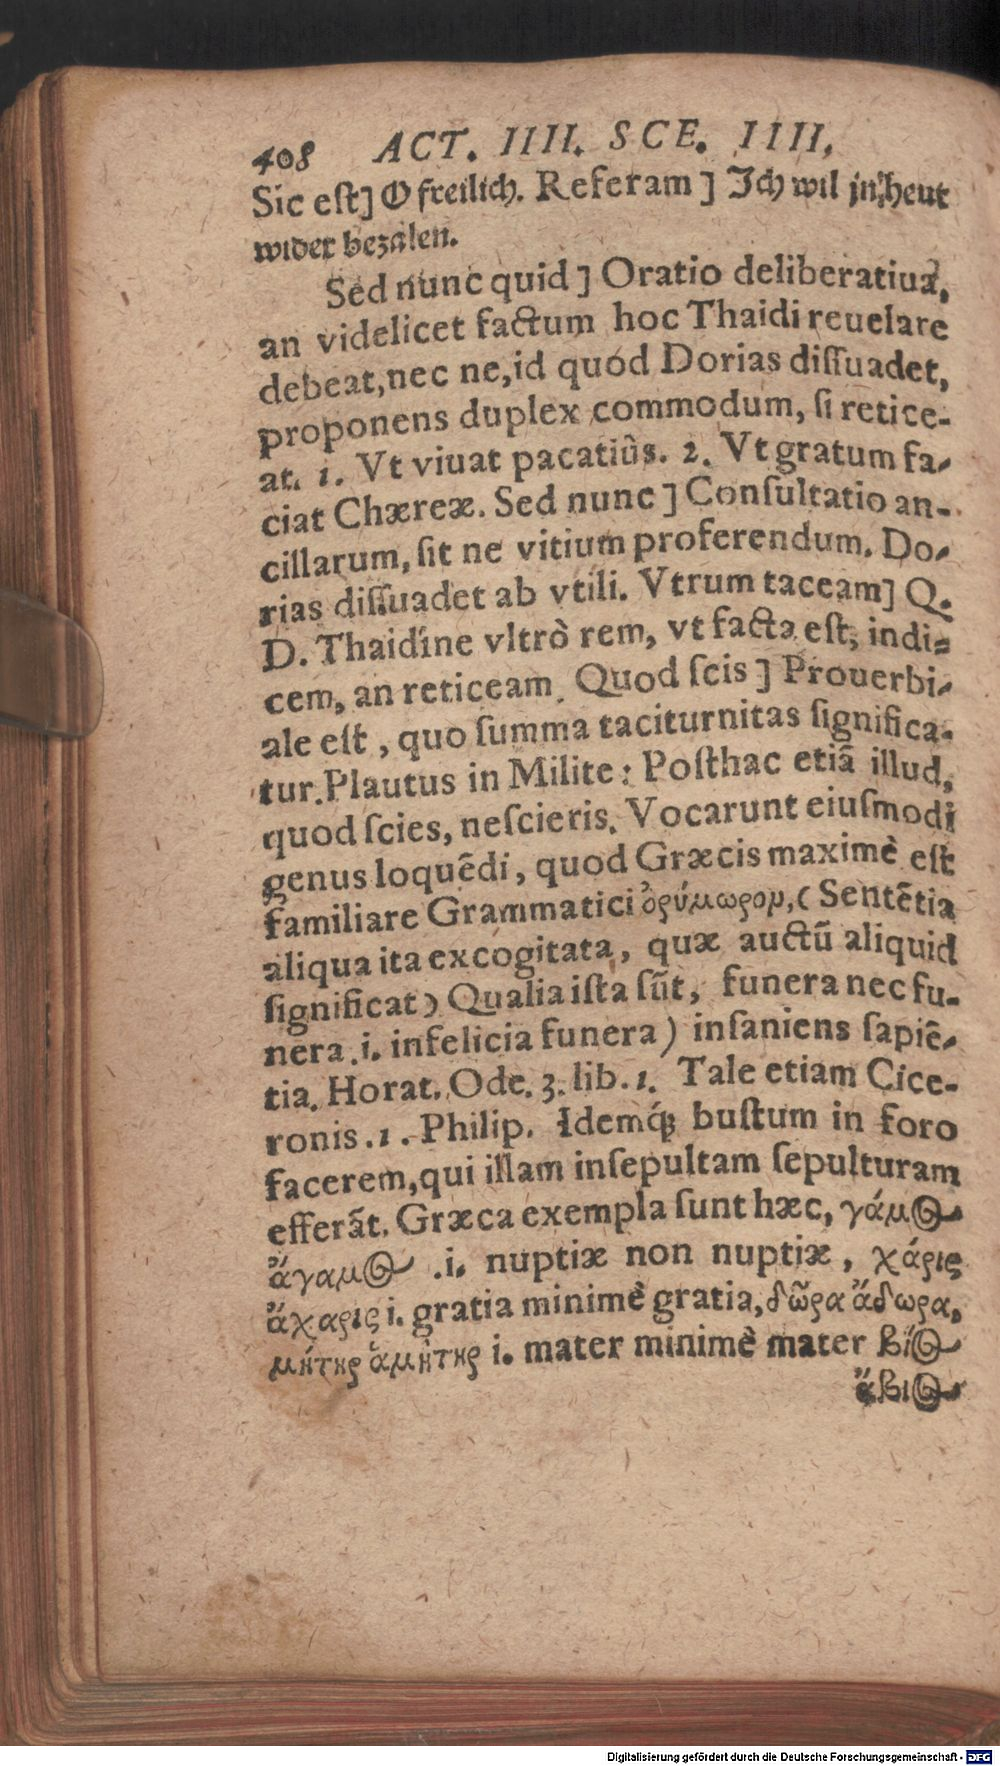 408 ACT. IIII. SCE. IIII.
Sic eſt] O freilich. Referam ] Ich wil jn heut
wider bezalen.
Sed nunc quid ] Oratio deliberatiua,
an videlicet factum hoc Thaidi reuelare
debeat, nec ne, id quod Dorias diſſuadet,
proponens duplex commodum, ſi retice-
at. 1. Vt viuat pacatiùs. 2. Vt gratum fa-
ciat Chæreæ. Sed nunc ] Conſultatio an-
cillarum, ſit ne vitium proferendum. Do-
rias diſſuadet ab vtili. Vtrum taceam] Q.
D. Thaidíne vltrò rem, vt facta eſt, indi-
cem, an reticeam. Quod ſcis ] Prouerbi-
ale eſt, quo ſumma taciturnitas ſignifica-
tur. Plautus in Milite: Poſthac etiã illud,
quod ſcies, neſcieris. Vocarunt eiuſmodi
genus loquẽdi, quod Græcis maximè eſt
familiare Grammatici ὀξύμωρον, ( Sentẽtia
aliqua ita excogitata, quæ auctũ aliquid
ſignificat) Qualia iſta ſũt, funera nec fu-
nera .i. infelicia funera) inſaniens ſapiẽ-
tia. Horat. Ode. 3. lib. 1. Tale etiam Cice-
ronis .1. Philip. Idemq́; buſtum in foro
facerem, qui illam inſepultam ſepulturam
efferãt. Græca exempla ſunt hæc, γάμος
ἄγαμος .i. nuptiæ non nuptiæ, χάρις
ἄχαρις i. gratia minimè gratia, δῶρα ἄδωρα,
μήτηρ ἀμήτηρ i. mater minimè mater βίος
ἄβιος
Digitalisierung gefördert durch die Deutsche Forschungsgemeinschaft - DFG